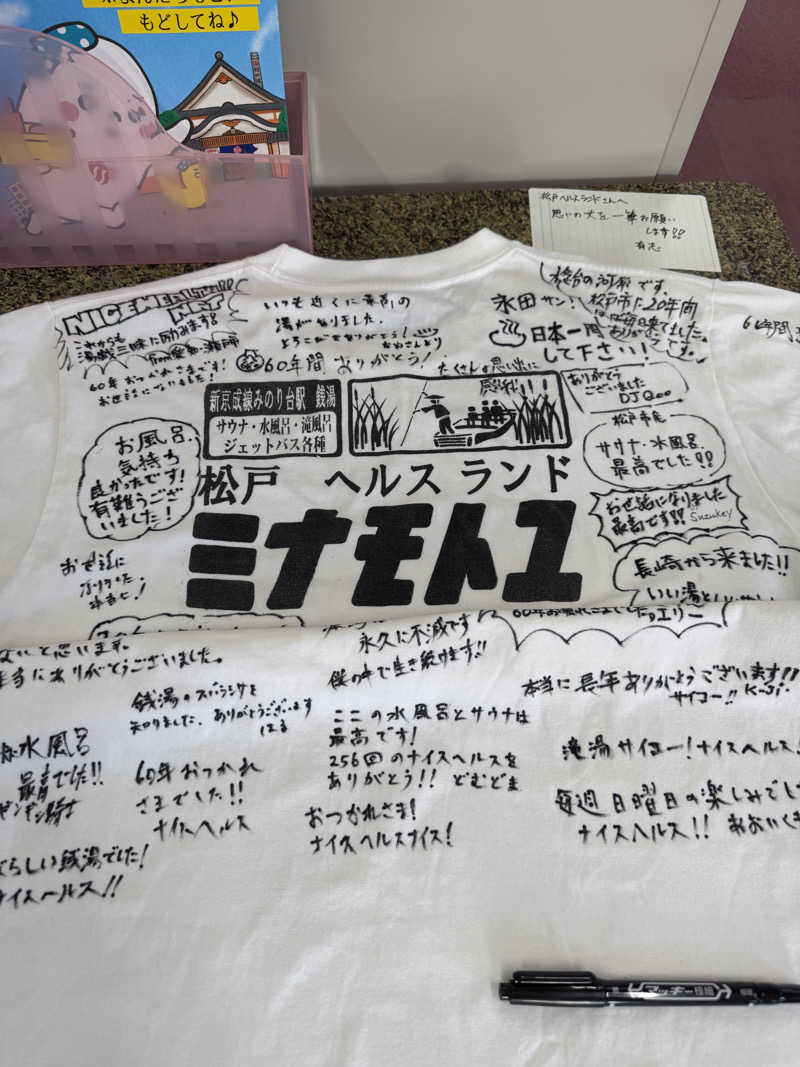 もどしてね♪
松戸ヘルスランドさんへ
思いの丈を一筆お願い
します!!
有志
NICEHEALTH
NET
これからも
湯戯三昧に励みます!
60年おつかれさまです!
お世話に
いつも近くに最高の
湯がありました。
60年間ありがとう!
永田サン!
日本一周
して下さい!
松戸市に20年間
ほぼ毎日来てました。
ありがとう
です。
たくさんの思い出に
感謝!
ありがとう
ございました
DJ Qoo
新京成線みのり台駅 銭湯
サウナ・水風呂・滝風呂
ジェットバス各種
松戸 ヘルス ランド
ミナモトユ
お風呂、
気持ち
良かったです!
有難うござ
いました!
松戸市民
サウナ・水風呂、
最高でした!!
お世話になりました
最高です!!
Suzukey
長崎から来ました!!
いい湯
お世話に
なりました。
エリー
ないと思います。
本当にありがとうございました。
永久に不滅です
僕の中で生き続けます!!
銭湯のスバラシサを
知りました。ありがとうございます
はる
本当に長年ありがとうございます!!
サイコー!! K-Ji.
水風呂
最高でした!!
60年おつかれ
さまでした!!
ナイスヘルス
ここの水風呂とサウナは
最高です!
256回のナイスヘルスを
ありがとう!! どむどま
おつかれさま!
ナイスヘルスナイス!
滝湯サイコー!ナイスヘルス!
毎週日曜日の楽しみでし
ナイスヘルス!!
らしい銭湯でした!
ナイスヘルス!!
マッキー極細